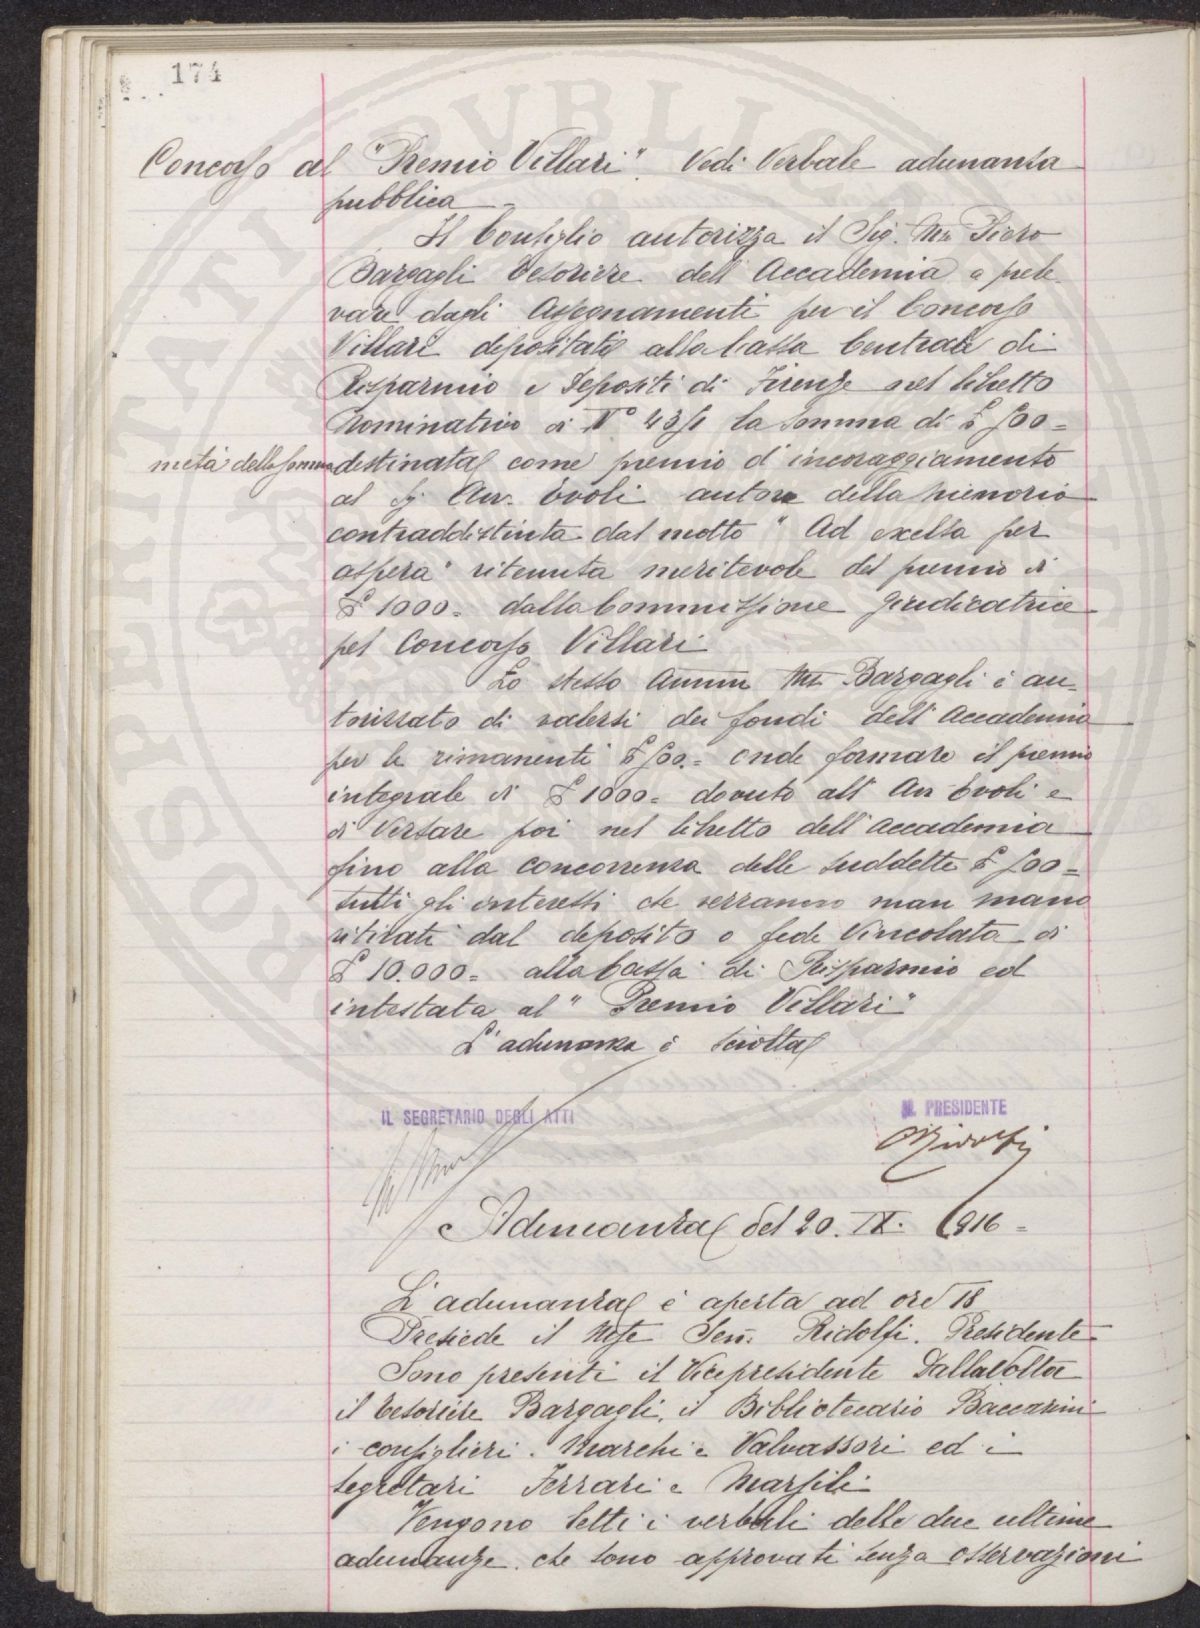 174
Concorso al "Premio Villari". Vedi Verbale adunanza
pubblica
Il Consiglio autorizza il Sig. Mse Piero
Bargagli tesoriere dell'Accademia a prele
vare dagli assegnamenti per il Concorso
Villari depositati alla Cassa Centrale di
Risparmio e Depositi di Firenze nel libretto
nominativo di N° la somma di £ 500=
metà della somma destinata come premio d'incoraggiamento
al Sig. Avv. Evoli autore della memoria
contraddistinta dal motto "Ad excelsa per
aspera" ritenuta meritevole del premio di
£ 1000= dalla Commissione giudicatrice
pel Concorso Villari
Lo stesso Amm. Mse Bargagli è au-
torizzato di valersi dei fondi dell'Accademia
per le rimanenti £ 500.= onde formare il premio
integrale di £ 1000= dovuto all'Avv Evoli e
di versare poi nel libretto dell'Accademia
fino alla concorrenza delle suddette £ 500=
tutti gli interessi che verranno man mano
ritirati dal deposito o fede Vincolata di
£ 10.000= alla Cassa di Risparmio ed
intestata al "Premio Villari"
L'adunanza è sciolta
IL SEGRETARIO DEGLI ATTI
IL PRESIDENTE
Ridolfi
Adunanza del 20. IX. 1916=
L'adunanza è aperta ad ore 18
Presiede il Mse Sen. Ridolfi. Presidente
Sono presenti il Vicepresidente Dallavolta
il tesoriere Bargagli, il Bibliotecario Baccarini
i consiglieri. Marchi e Valvassori ed i
segretari Ferrari e Marsili
Vengono letti i verbali delle due ultime
adunanze. che sono approvati senza osservazioni
PROSPERITATI PVBLICAE